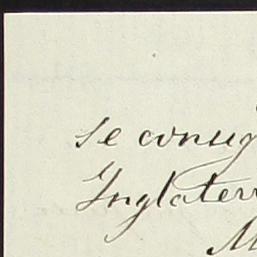 se consig
Inglaterr
M